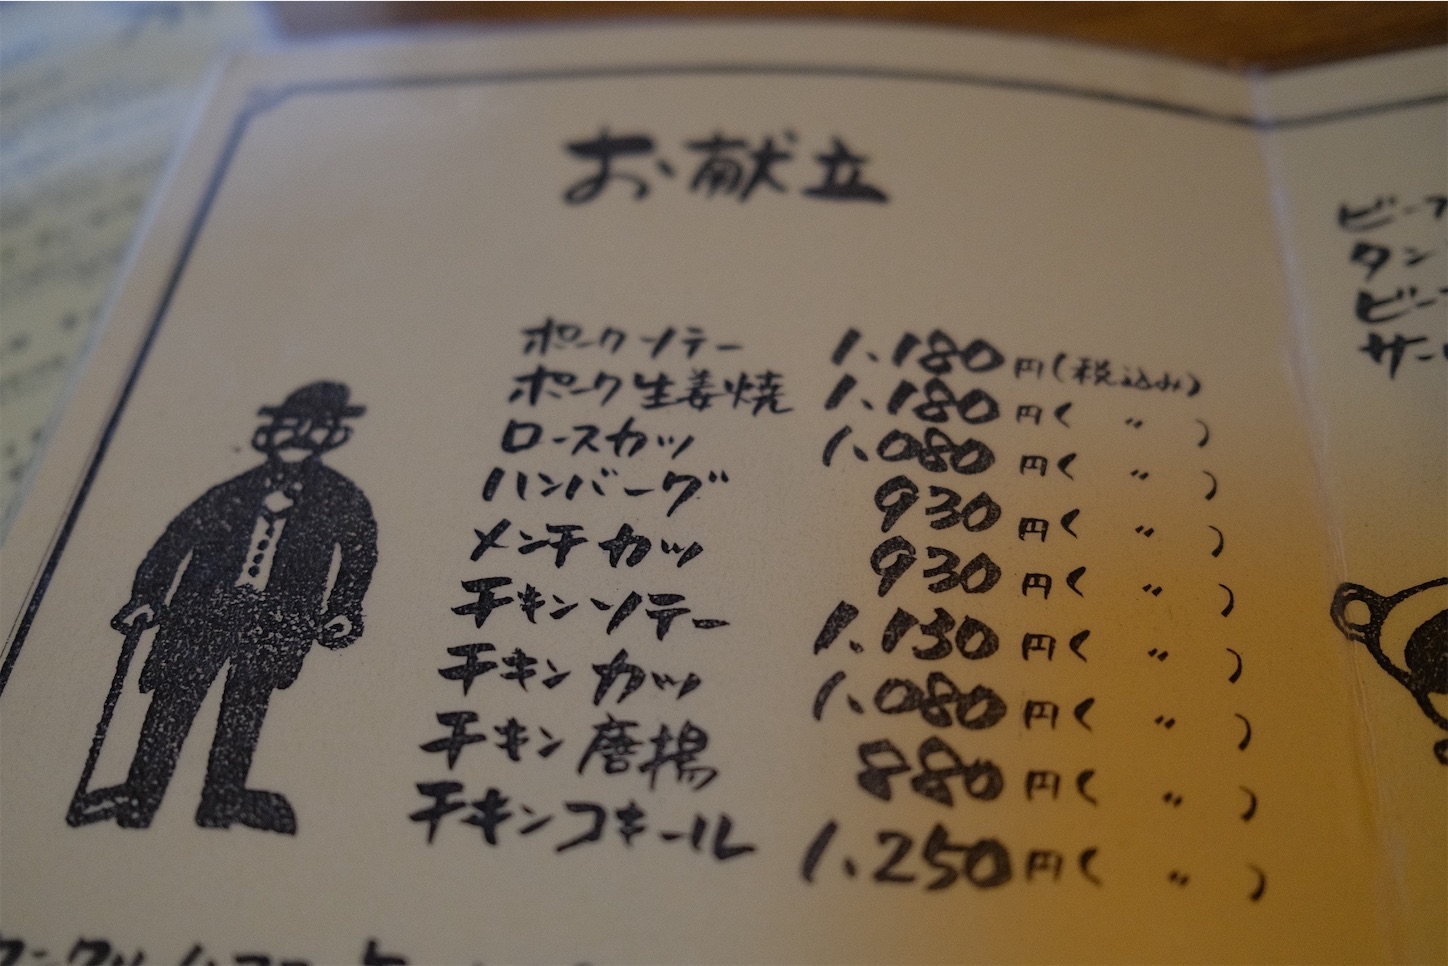 お献立
ポークソテー 1.180円(税込み)
ポーク生姜焼 1.180円( 〃 )
ロースカツ 1.080円( 〃 )
ハンバーグ 930円( 〃 )
メンチカツ 930円( 〃 )
チキンソテー 1.130円( 〃 )
チキンカツ 1.080円( 〃 )
チキン唐揚 880円( 〃 )
チキンコキール 1.250円( 〃 )
ビーフ
タン
ビー
サー